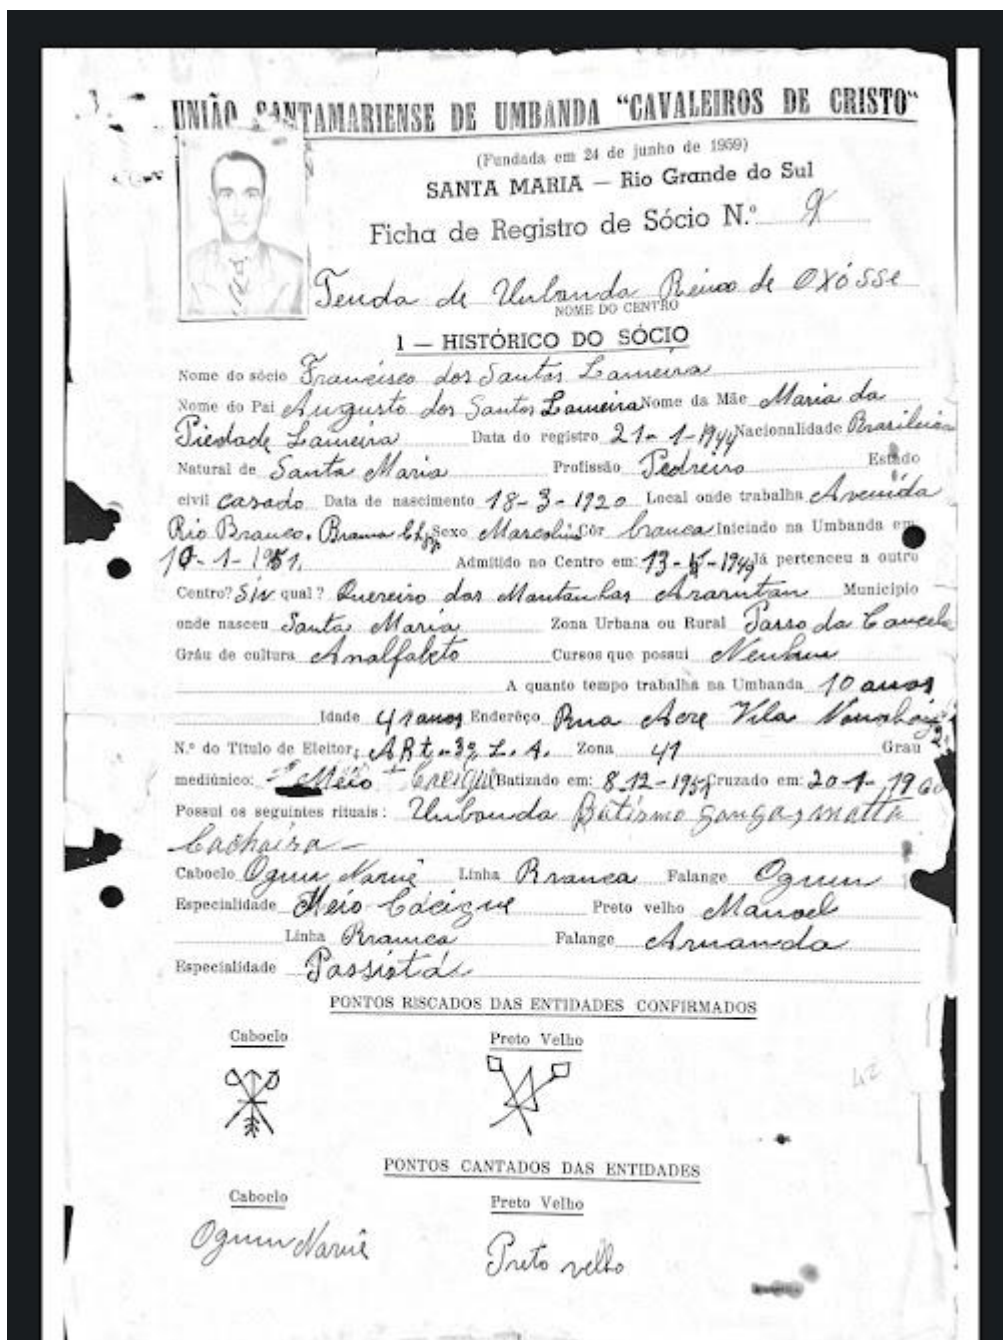 UNIÃO SANTAMARIENSE DE UMBANDA "CAVALEIROS DE CRISTO"
(Fundada em 24 de junho de 1959)
SANTA MARIA — Rio Grande do Sul
Ficha de Registro de Sócio N.º 9
Tenda de Umbanda Reino de OXÓSSE
NOME DO CENTRO
1 — HISTÓRICO DO SÓCIO
Nome do sócio Francisco dos Santos Lameira
Nome do Pai Augusto dos Santos Lameira Nome da Mãe Maria da
Piedade Lameira Data do registro 21-1-19 Nacionalidade Brasileira
Natural de Santa Maria Profissão Pedreiro Estado
civil casado Data de nascimento 18-3-1920 Local onde trabalha Avenida
Rio Branco. Sexo Côr branca Iniciado na Umbanda em
10-1-1951. Admitido no Centro em: 13- Já pertenceu a outro
Centro? Sin qual? das Município
onde nasceu Santa Maria Zona Urbana ou Rural Passo da
Gráu de cultura Analfabeto Cursos que possui Nenhum
A quanto tempo trabalha na Umbanda 10 anos
Idade 41 anos Enderêço Rua Acre Vila
N.º do Título de Eleitor: Zona 41 Grau
mediúnico: Meio Batizado em: 8-12-195 Cruzado em: 20-1-1960
Possui os seguintes rituais: Umbanda Batismo matta
Cachoira
Caboclo Ogum Naruê Linha Branca Falange Ogum
Especialidade Meio Cacique Preto velho Manoel
Linha Branca Falange Aruanda
Especialidade Passista
PONTOS RISCADOS DAS ENTIDADES CONFIRMADOS
Caboclo Preto Velho
42
PONTOS CANTADOS DAS ENTIDADES
Caboclo Preto Velho
Ogum Naruê Preto velho